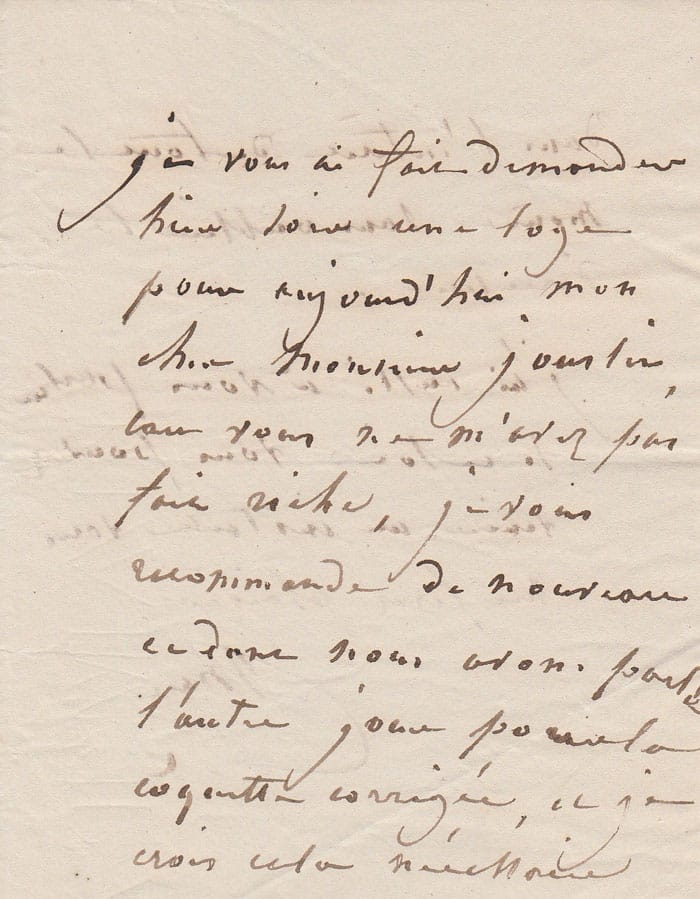 je vous ai fait demander
hier soir une loge
pour aujourd'hui mon
cher monsieur jouslin
car vous ne m'avez pas
fait riche, je vous
recommande de nouveau
ce dont nous avons parlé
l'autre jour pour la
coquette corrigée, et je
crois cela nécessaire